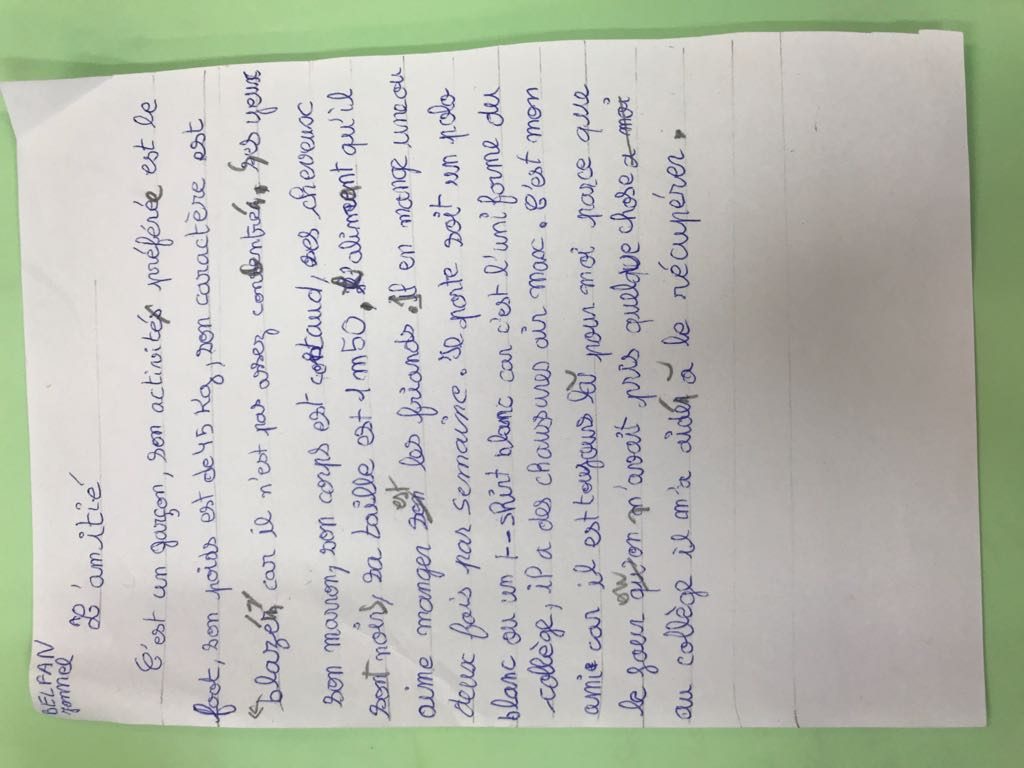 BELFAN
L'amitié
C'est un garçon, son activités préférée est le
foot, son poids est de 45 Kg, son caractère est
"blazé" car il n'est pas assez , Ses yeux
son marron, son corps est costaud, ses cheveux
sont noirs, sa taille est 1m50, l'aliment qu'il
aime manger est les friands. Il en mange une ou
deux fois par semaine. Il porte soit un polo
blanc ou un t-shirt blanc car c'est l'uniforme du
collège, il a des chaussures air max. C'est mon
ami car il est toujours là pour moi parce que
le jour où on m'avait pris quelque chose
au collège il m'a aidé à le récupérer.